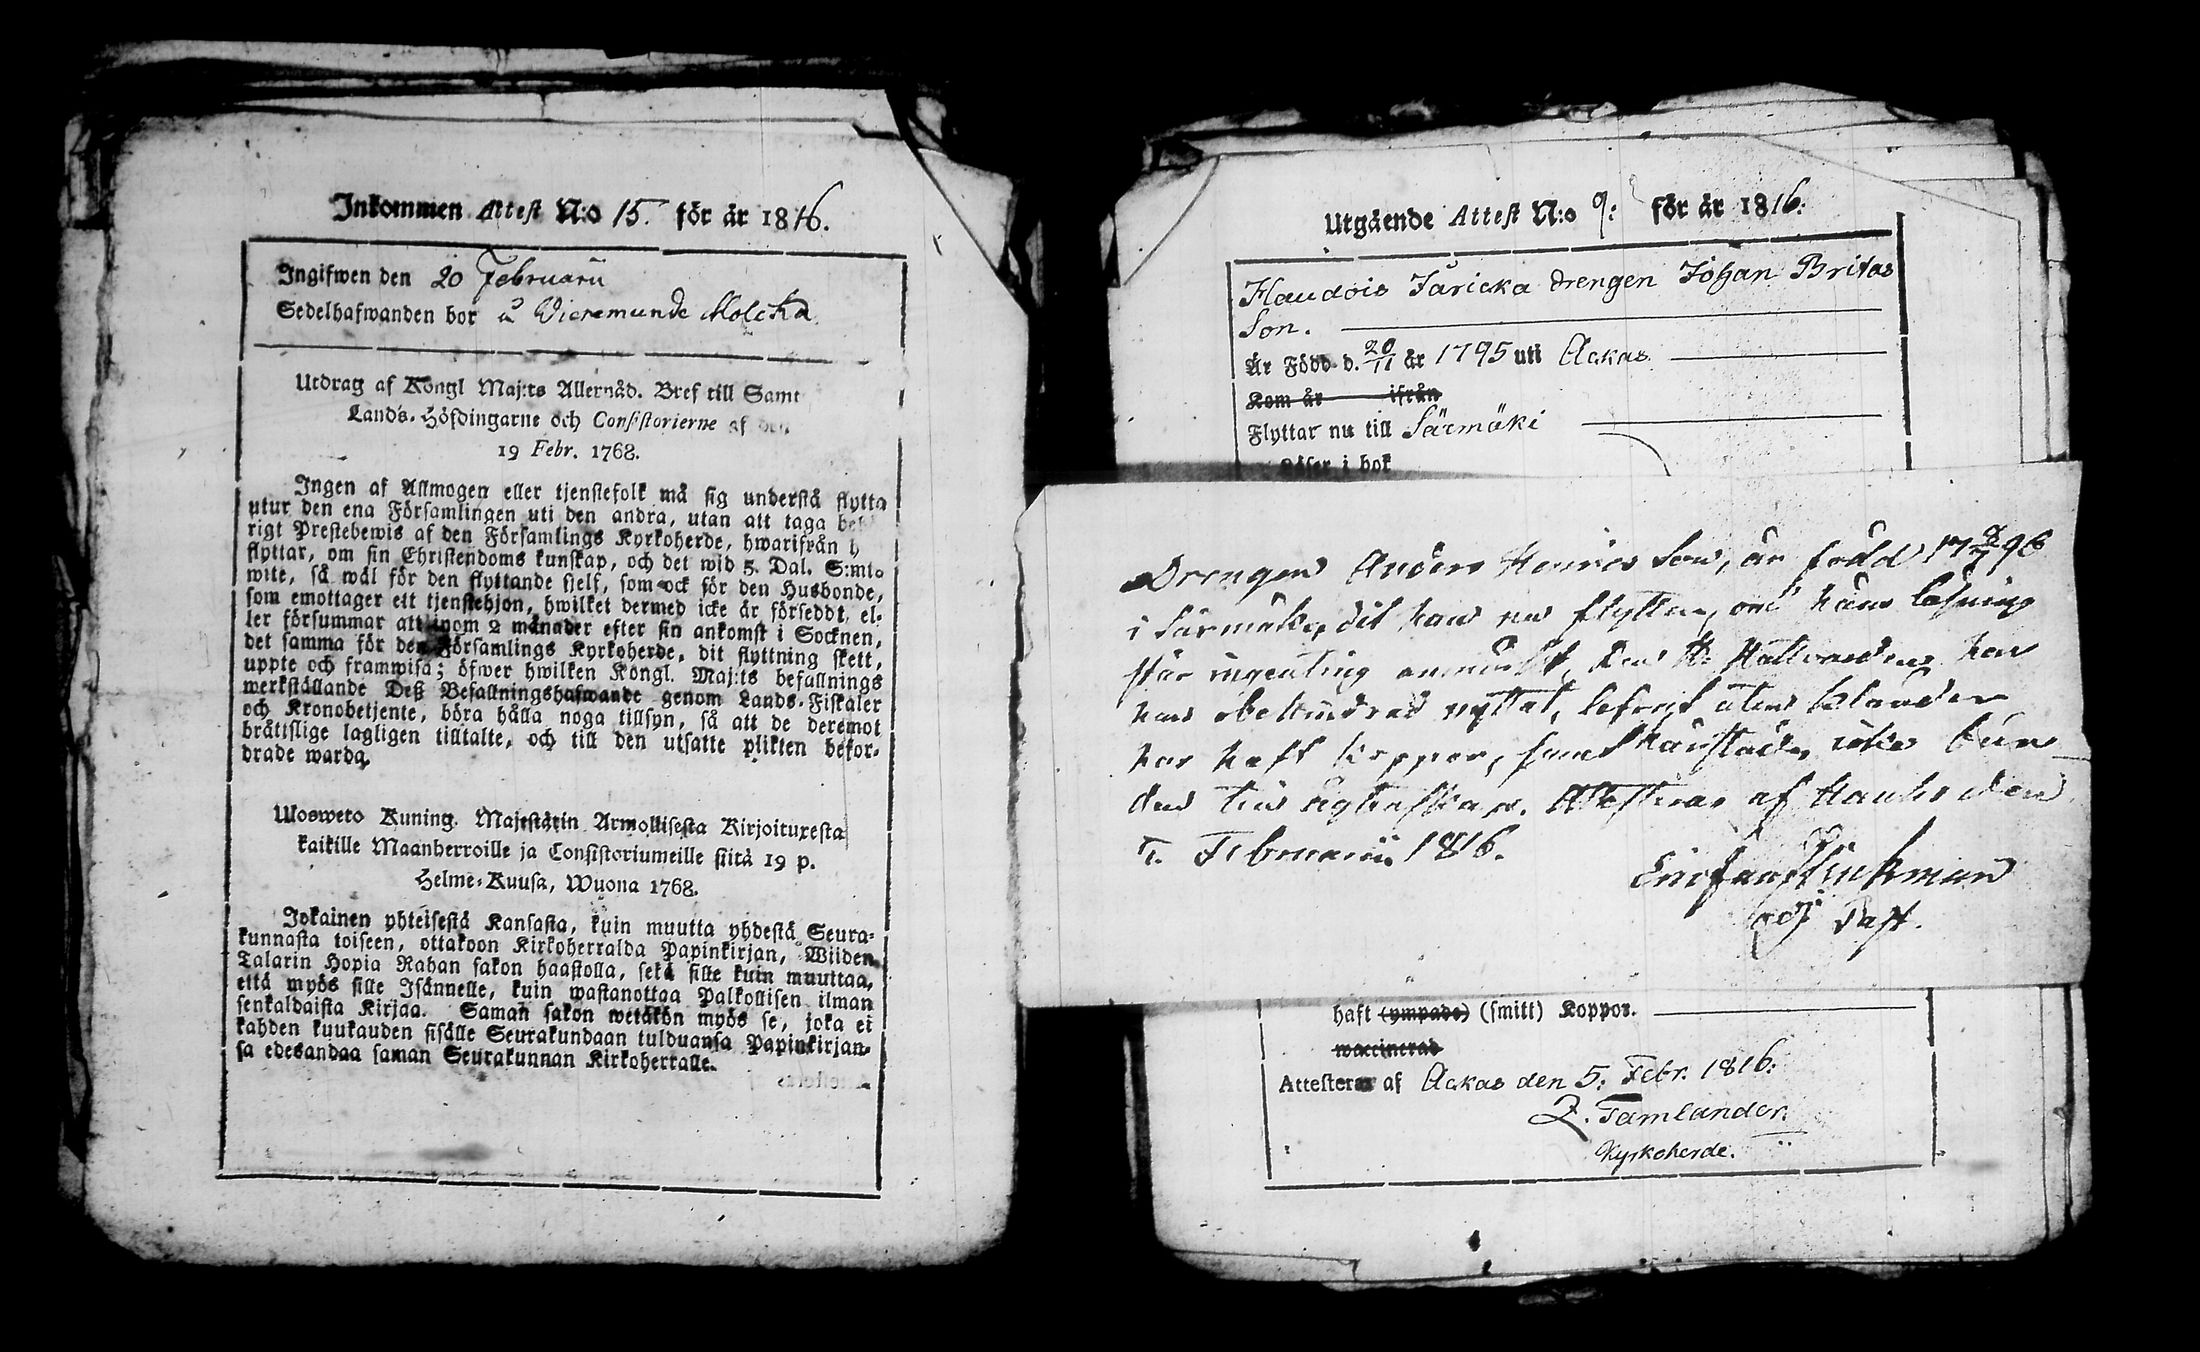 Inkommen Attest N:o 15. för år 1816.
Ingifwen den 20 Februarii
Sedelhafwanden bor å Vieremunde Molcka
Utdrag af Kongl Maj:ts Allernåd. Bref till Samt
Lands-Höfdingarne och Consistorierne af den
19 Febr. 1768.
Ingen af Allmogen eller tjenstefolk må sig understå flytta
utur den ena Församlingen uti den andra, utan att taga
rigt Prestebewis af den Församlings Kyrkoherde, hwarifrån h
flyttar, om sin Christendoms kunskap, och det wid 5. Dal. S:mt.
wite, så wäl för den flyttande sjelf, som ock för den Husbonde,
som emottager ett tjenstehjon, hwilket dermed icke är försedt, el-
ler försummar att inom 2 månader efter sin ankomst i Socknen,
det samma för den Församlings Kyrkoherde, dit flyttning skett,
uppte och framwisa; öfwer hwilken Kongl. Maj:ts befallnings
werkställande Deß Befallningshafwande genom Lands-Fiskaler
och Kronobetjente, böra hålla noga tillsyn, så att de deremot
bråttslige lagligen tilltalte, och till den utsatte plikten befor-
drade warda.
Uloswето Kuning. Majestätin Armollisesta Kirjoituxesta
kaikille Maanherroille ja Consistoriumeille siitä 19 p.
Helme-Kuusa, Wuona 1768.
Jokainen yhteisestä Kansasta, kuin muutta yhdestä Seura-
kunnasta toiseen, ottakoon Kirkoherralda Papinkirjan, Wiiden
Talarin Hopia Rahan sakon haastolla, sekä sille kuin muuttaa,
että myös sille Isännelle, kuin wastanottaa Palkollisen ilman
senkaldaista Kirjaa. Saman sakon wetäkön myös se, joka ei
kahden kuukauden sisälle Seurakundaan tulduansa Papinkirjan-
sa edesandaa saman Seurakunnan Kirkoherralle.
Utgående Attest N:o 9: för år 1816.
Flaudois Jaricka drengen Johan Britas
Son.
Är Född d. 20/11 år 1795 uti Ackas
Kom år ifrån
Flyttar nu till Särmäki
Läser i bok
Drengen Anders Henrics Son, är född 17 8/7 96
i Särmäki, dit han nu flyttar, om hans läsning
står ingenting anmärkt, den H: Nattvarden har
han obehindrad nyttat,
har haft koppor, samt icke
den till Ägtenskap. Attesteras af Hauho den
7. Februarii 1816.
adj Past.
haft (ympade) (smitt) Koppor.
waccinerad
Attesteras af Ackas den 5: Febr. 1816:
Z. Tamlander.
Kyrkoherde.